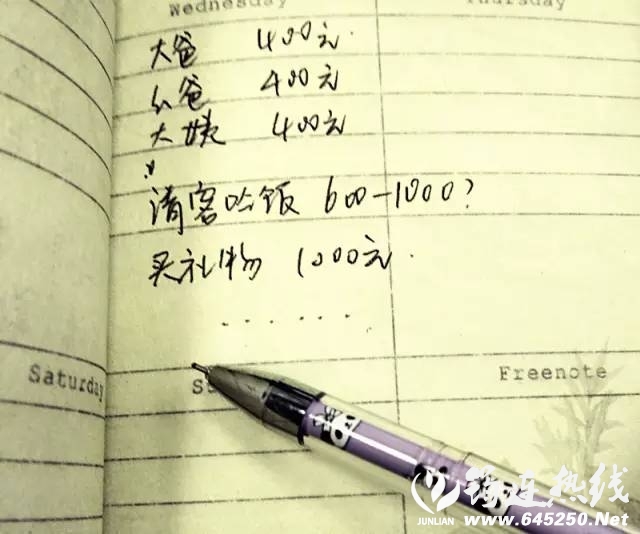 Wednesday
Thursday
大爸 400元
么爸 400元
大姨 400元
请客吃饭 600-1000?
买礼物 1000元.
......
Saturday
Freenote
筠连热线
JUNLIAN
www.645250.Net